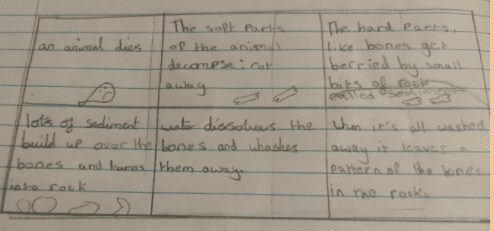 an animal dies
The soft Parts
of the animal
decompse: rot
away
The hard Parts,
like bones get
berried by small
bits of rock
called "sediment"
lots of sediment
build up over the
bones and turns
into rock
water dissolves the
bones and whashes
them away.
When it's all washed
away it leaves a
pattern of the bones
in the rock.